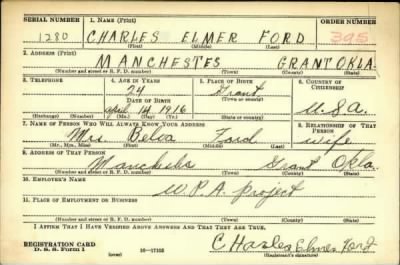 SERIAL NUMBER 1. NAME (Print) ORDER NUMBER
1280 CHARLES ELMER FORD 395
(First) (Middle) (Last)
2. ADDRESS (Print)
MANCHESTES GRANT OKLA.
(Number and street or R. F. D. number) (Town) (County) (State)
3. TELEPHONE 4. AGE IN YEARS 5. PLACE OF BIRTH 6. COUNTRY OF CITIZENSHIP
24 Grant
DATE OF BIRTH (Town or county)
April 14 1916 U.S.A.
(Exchange) (Number) (Mo.) (Day) (Yr.) (State or country)
7. NAME OF PERSON WHO WILL ALWAYS KNOW YOUR ADDRESS 8. RELATIONSHIP OF THAT PERSON
Mrs. Belva Ford Wife
(Mr., Mrs., Miss) (First) (Middle) (Last)
9. ADDRESS OF THAT PERSON
Manchester Grant Okla.
(Number and street or R. F. D. number) (Town) (County) (State)
10. EMPLOYER'S NAME
W.P.A. project
11. PLACE OF EMPLOYMENT OR BUSINESS
(Number and street or R. F. D. number) (Town) (County) (State)
I AFFIRM THAT I HAVE VERIFIED ABOVE ANSWERS AND THAT THEY ARE TRUE.
REGISTRATION CARD
D. S. S. Form 1 (over) 16—17105
Charles Elmer Ford
(Registrant's signature)